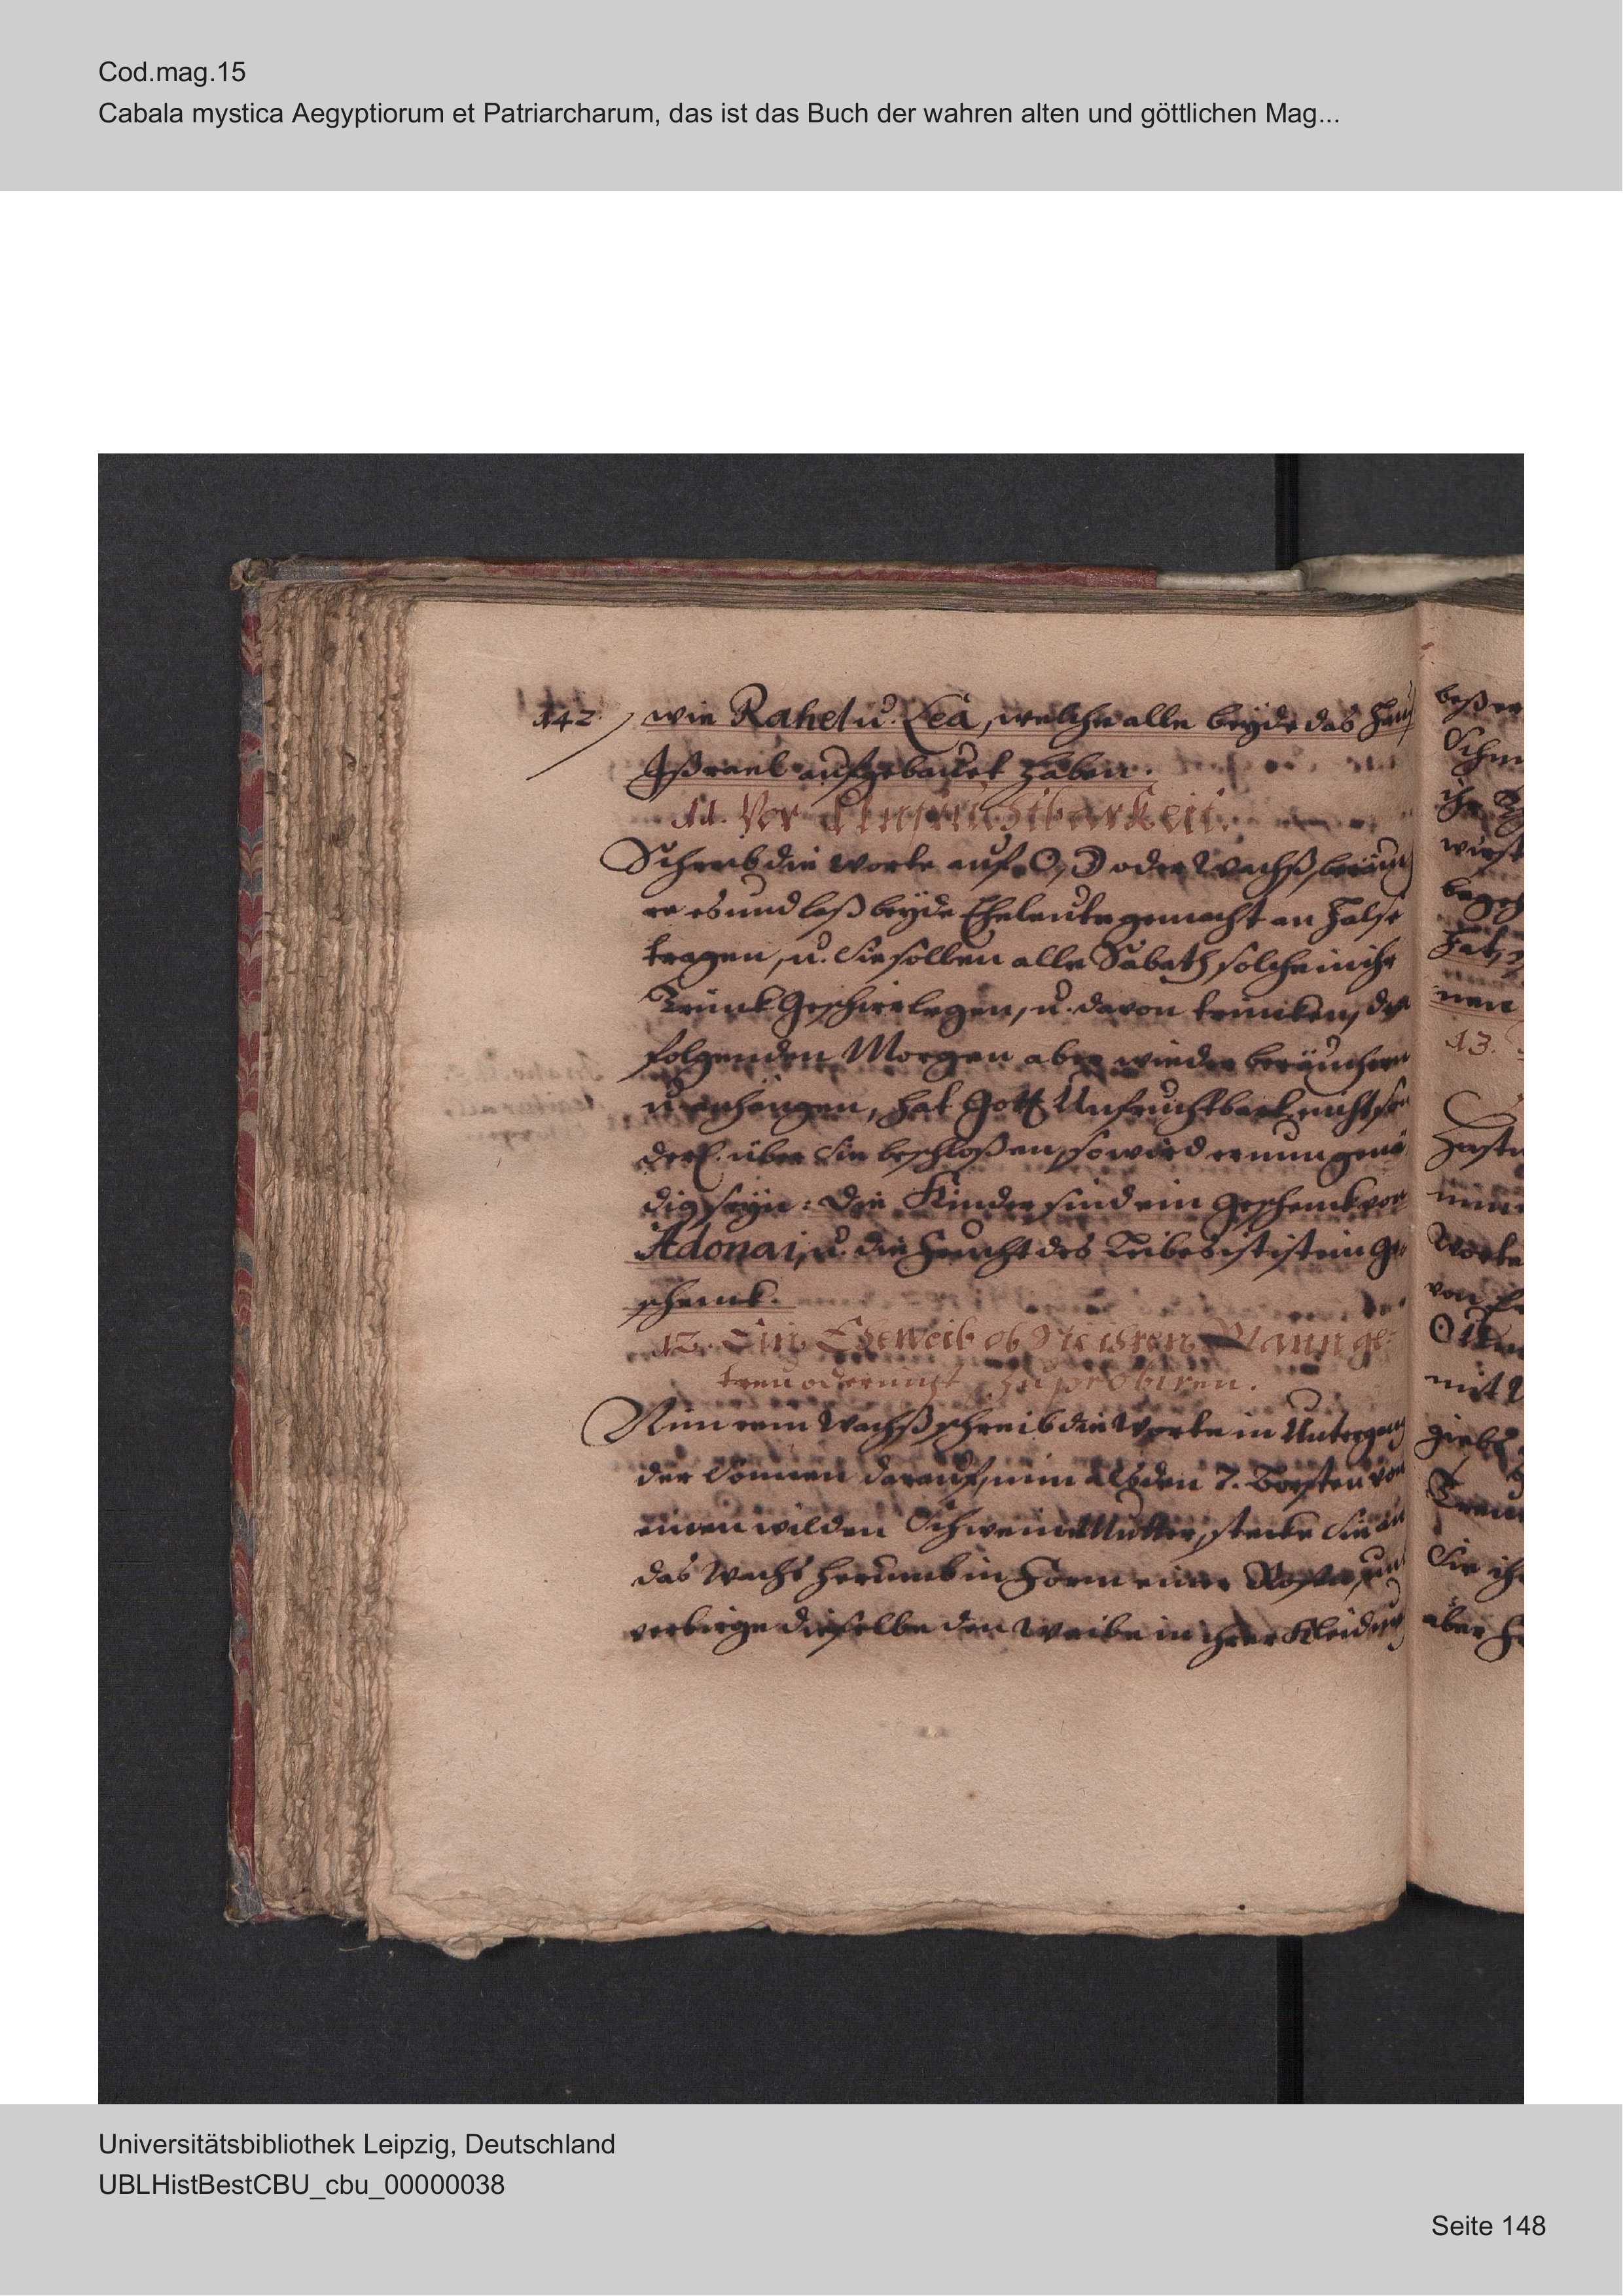 Cod.mag.15
Cabala mystica Aegyptiorum et Patriarcharum, das ist das Buch der wahren alten und göttlichen Mag...
142 wie Rahel u. Lea, welche alle beyde das Hauß
Ißrael aufgebauet haben.
11. Vor Unfruchtbarkeit.
Schreib die Worte auf ☉, ☽ oder Wachß, beräuch
re es und laß beyde Eheleute gemacht an Halse
tragen, u. sie sollen alle Sabath solche in ihr
Trinck Geschirr legen, u. davon trincken, des
folgenden Morgen aber wieder beräuchern
u. anhängen, hat Gott Unfruchtbark. nicht son
derl. über sie beschloßen, so wird er nun gnä
dig seyn: Die Kinder sind ein Geschenck von
Adonai, u. die Frucht des Leibes ist ist ein Ge
schenck.
12. Ein Eheweib ob sie ihren Mann ge-
treu oder nicht zu probiren.
Nim rein Wachß schreib die Worte in Untergang
der Sonnen darauf, nim alßden 7. Borsten von
einen wilden Schweine Mutter, stecke sie an
das Wachs herumb in Form einer Rosen, und
verbirge dieselbe den Weibe in ihrer Kleidung
13.
Universitätsbibliothek Leipzig, Deutschland
UBLHistBestCBU_cbu_00000038
Seite 148